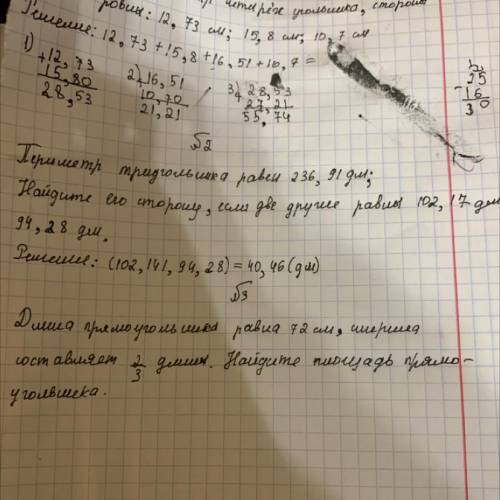 четырёх угольника, стороны
равны: 12, 73 см; 15, 8 см; 10, 7 см
Решение: 12, 73 + 15, 8 + 16, 51 + 10, 7 =
1) +12, 73
15, 80
28, 53
2) +16, 51
10, 70
21, 21
3) +28, 53
27, 21
55, 74
25
- 16
30
№2
Периметр треугольника равен 236, 91 дм;
Найдите его сторону, если две другие равны 102, 17 дм
94, 28 дм.
Решение: (102, 141, 94, 28) = 40, 46 (дм)
№3
Длина прямоугольника равна 72 см, ширина
составляет 2/3 длины. Найдите площадь прямо-
угольника.